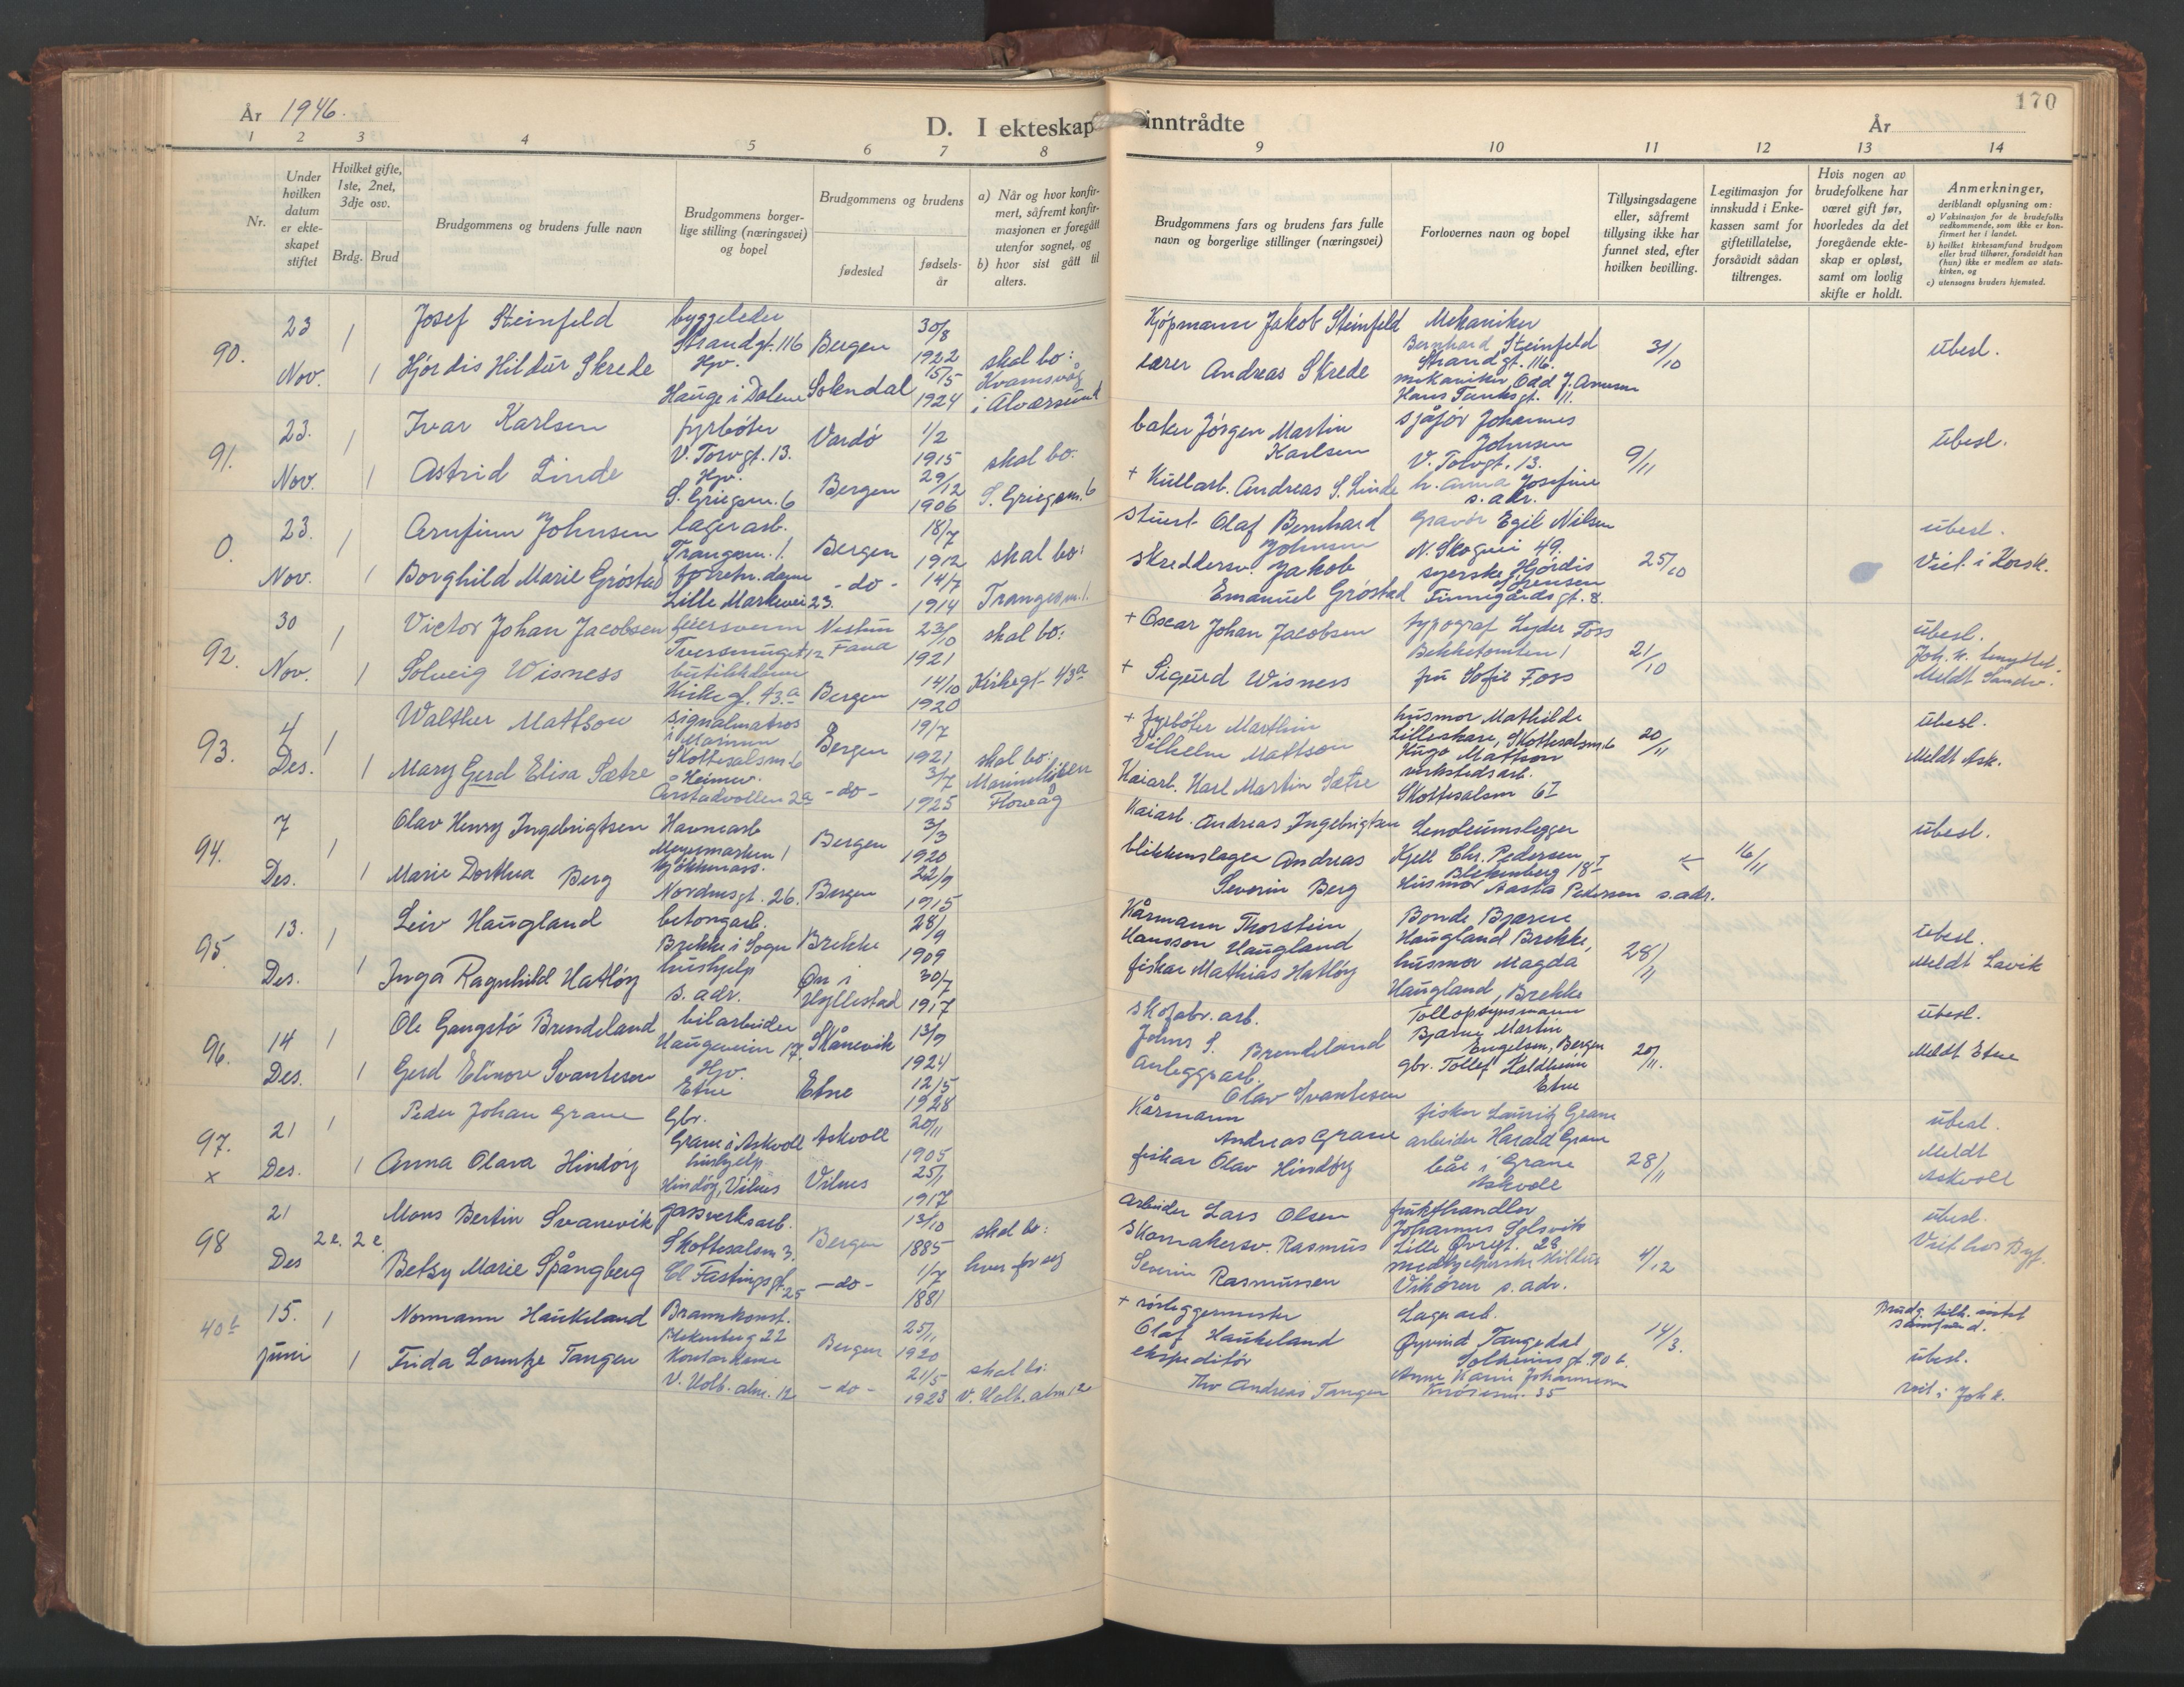 År 1946.
D. I ekteskap inntrådte
År
170
1 2 3 4 5 6 7 8 9 10 11 12 13 14
Nr.
Under hvilken datum er ekteskapet stiftet
Hvilket gifte, 1ste, 2net, 3dje osv.
Brdg. Brud
Brudgommens og brudens fulle navn
Brudgommens borgerlige stilling (næringsvei) og bopel
Brudgommens og brudens
fødested
fødselsår
a) Når og hvor konfirmert, såfremt konfirmasjonen er foregått utenfor sognet, og
b) hvor sist gått til alters.
Brudgommens fars og brudens fars fulle navn og borgerlige stillinger (næringsvei)
Forlovernes navn og bopel
Tillysingsdagene eller, såfremt tillysing ikke har funnet sted, efter hvilken bevilling.
Legitimasjon for innskudd i Enkekassen samt for giftetillatelse, forsåvidt sådan tiltrenges.
Hvis nogen av brudefolkene har været gift før, hvorledes da det foregående ekteskap er opløst, samt om lovlig skifte er holdt.
Anmerkninger,
deriblandt oplysning om:
a) Vaksinasjon for de brudefolks vedkommende, som ikke er konfirmert her i landet.
b) hvilket kirkesamfund brudgom eller brud tilhører, forsåvidt han (hun) ikke er medlem av statskirken, og
c) utensogns bruders hjemsted.
90.
23 Nov.
1 1
Josef Steinfeld
Hjørdis Hildur Skrede
byggeleder
Strandgt. 116
Hjv.
Hauge i Dalene
Bergen
Sokndal
30/8 1922
15/5 1924
skal bo:
Kvamsvåg
i Alversund
Kjøpmann Jakob Steinfeld
lærer Andreas Skrede
Mekaniker
Bernhard Steinfeld
Strandgt. 116.
mekaniker Odd J. Arnesen
Hans Tanksgt. 11.
31/10
ubesl.
91.
23. Nov.
1 1
Ivar Karlsen
Astrid Linde
fyrbøter
V. Torvgt. 13.
Hjv.
S. Griegsm. 6
Vardø
Bergen
1/2 1915
29/12 1906
skal bo.
S. Griegsm. 6
baker Jørgen Martin
Karlsen
+ Kullarb. Andreas S. Linde
sjåfør Johannes
Johnsen
V. Torvgt. 13.
h. Anna Josefine
s. adr.
9/11
ubesl.
0.
23. Nov.
1 1
Arnfinn Johnsen
Borghild Marie Grøstad
lagerarb.
Trangesm. 1.
forretn. dame
Lille Markevei 23.
Bergen
- do -
18/7 1912
14/7 1914
skal bo:
Trangesm. 1.
stuert Olaf Bernhard
Johnsen
skreddersv. Jakob
Emanuel Grøstad
Gravør Egil Nilsen
N. Skogvei 49.
syerske Hjørdis
Sørensen
Finnegårdsgt. 8.
25/10
ubesl.
Viet i Korsk.
92.
30 Nov.
1 1
Victor Johan Jacobsen
Solveig Wisness
feiersvenn
Tversmuget 12
butikkdame
Kirkegt. 43a
Nestun
Fana
Bergen
23/10 1921
14/10 1920
skal bo:
Kirkegt. 43a
+ Oscar Johan Jacobsen
+ Sigurd Wisness
typograf Lyder Foss
Bekketomten 1
fru Sofie Foss
21/10
ubesl.
Meldt Sandv.
93.
4 Des.
1 1
Walther Mattson
Mary Gerd Elisa Sætre
signalmatros
i Marinen
Skottesalsm 6
Heimev.
Årstadvollen 2a
Bergen
- do -
19/7 1921
3/7 1925
skal bo:
Florvåg
+ fyrbøter Marthin
Vilhelm Mattson
Kaiarb. Karl Martin Sætre
husmor Mathilde
Lilleskare, Skottesalsm. 6
Hugo Mattson
verkstedsarb.
Skottesalsm 6 I
20/11
ubesl.
Meldt Ask.
94.
7 Des.
1 1
Olav Henry Ingebrigtsen
Marie Dorthea Berg
Havnearb
Meyermarken 1
kjøkkenass.
Nordnesgt. 26.
Bergen
Bergen
3/3 1920
22/9 1915
Kaiarb. Andreas Ingebrigtsen
blikkenslager Andreas
Severin Berg
Lenoleumslegger
Kjell Chr. Pedersen
Blekenberg 18 I
Husmor Aasta Pedersen s. adr.
16/11
ubesl.
95
13. Des.
1 1
Leiv Haugland
Inga Ragnhild Hatløy
betongarb.
Brekke i Sogn
hushjelp
s. adr.
Brekke
Øn i
Hyllestad
28/9 1909
30/7 1917
Kårmann Thorstein
Hansson Haugland
fisker Mathias Hatløy
Bonde Bjarne
Haugland Brekke,
husmor Magda
Haugland, Brekke
28/11
ubesl.
Meldt Lavik
96.
14 Des.
1 1
Ole Gangstø Brendeland
Gerd Elinore Svantesen
bilarbeider
Haugeveien 17.
Hjv.
Etne
Skånevik
Etne
13/9 1924
12/5 1928
skofabr. arb.
Johns S. Brendeland
Anleggsarb.
Olav Svantesen
Tollopsynsmann
Bjarne Martin
Engelsen, Bergen
gbr. Tollef Haldheim
Etne
20/11.
ubesl.
Meldt Etne
97.
x
21 Des.
1 1
Peder Johan Grane
Anna Olava Hindøy
Gbr.
Grane i Askvoll
hushjelp
Hindøy, Vilnes
Askvoll
Vilnes
20/11 1905
25/1 1917
Kårmann
Andreas Grane
fisker Olav Hindøy
fisker Lauritz Grane
arbeider Harald Grane
båe i Grane
Askvoll
28/11
ubesl.
Meldt
Askvoll
98
21 Des
2e. 2e
Mons Bertin Svanevik
Betsy Marie Spångberg
gassverksarb.
Skottesalsm 3.
Cl Fastingsgt. 25
Bergen
- do -
13/10 1885
1/7 1881
skal bo:
hver for seg
Arbeider Lars Olsen
Skomakersv. Rasmus
Severin Rasmussen
frukthandler
Johannes Solsvik
Lille Øvregt. 28
medhjelperske
Vikøren s. adr.
4/12
ubesl.
Viet hos Byf.
40b
15. juni
1 1
Normann Haukeland
Frida Lorentze Tangen
Brannkonst.
Blekenberg 22
Kontordame
V. Holb. alm. 12
Bergen
- do -
25/11 1920
21/5 1923
skal bo:
V. Holb. alm 12
+ rørleggermester
Olaf Haukeland
ekspeditør
Thv Andreas Tangen
Lagerarb.
Øyvind Tangedal
Solheimsgt. 90 b.
Anne Karin Johannesen
14/3.
Brudg. tilh. intet
samfund.
ubesl.
viet i Joh k.